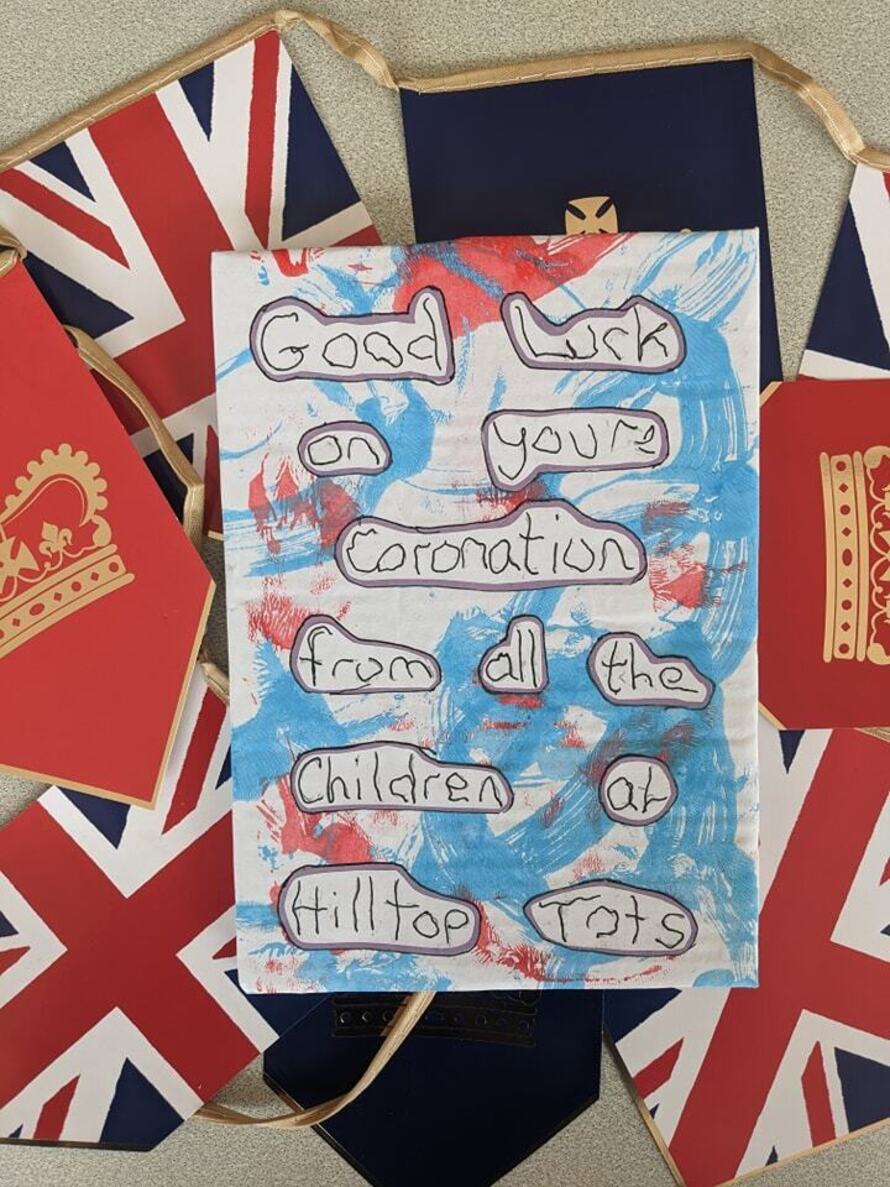 Good Luck
on youre
Coronation
from all the
Children at
Hilltop Tots